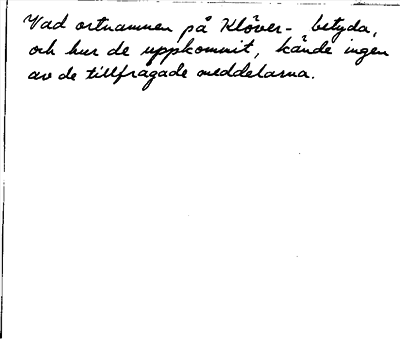 Vad ortnamnen på Klöver- betyda,
och hur de uppkommit, kände ingen
av de tillfrågade meddelarna.